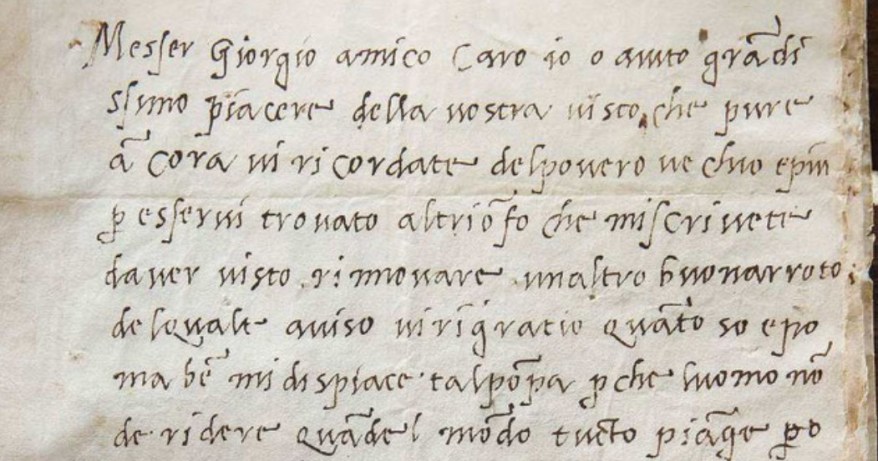 Messer Giorgio amico caro io o auto grãdi
ssimo piacere della vostra visto che pure
ãcora vi ricordate del povero vechio e piu
p̱ esservi trovato al triõfo che mi scrivete
d aver visto rinnovare un altro buonarroto
del quale aviso vi rĩgratio quãto so e po
ma bẽ mi dispiace tal põpa p̱che l uomo nõ
de ridere quãdo l mõdo tucto piãge p̱o